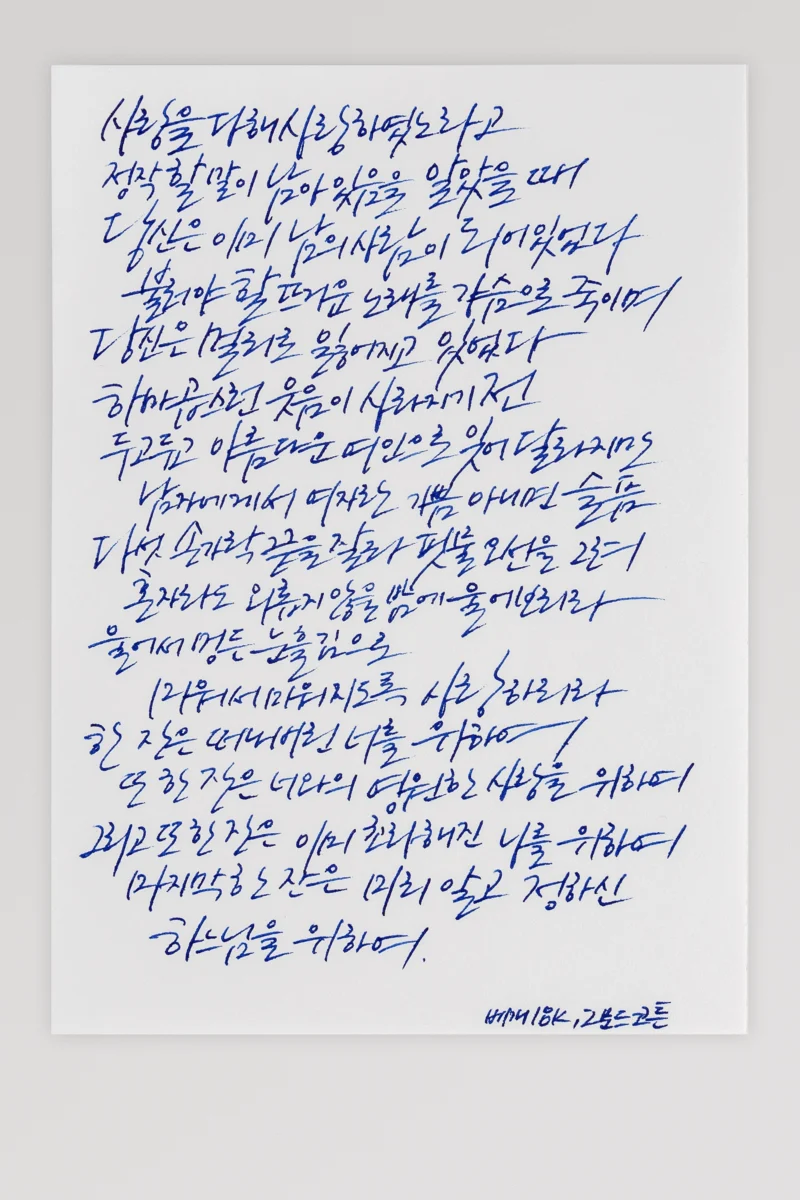 사랑을 다해 사랑하였노라고
정작 할 말이 남아 있음을 알았을 때
당신은 이미 남의 사람이 되어있었다
불러야 할 뜨거운 노래를 가슴으로 죽이며
당신은 멀리로 잃어지고 있었다
하마 곱스런 웃음이 사라지기 전
두고두고 아름다운 여인으로 잊어 달라지만
남자에게서 여자란 기쁨 아니면 슬픔
다섯 손가락 끝을 잘라 핏물 오선을 그려
혼자라도 외롭지 않을 밤에 울어보리라
울어서 멍든 눈흘김으로
미워서 미워지도록 사랑하리라
한 잔은 떠나버린 너를 위하여
또 한 잔은 너와의 영원한 사랑을 위하여
그리고 또 한 잔은 이미 초라해진 나를 위하여
마지막 한 잔은 미리 알고 정하신
하느님을 위하여.